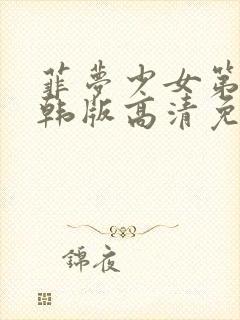 菲梦少女第
韩版高清免
錦夜